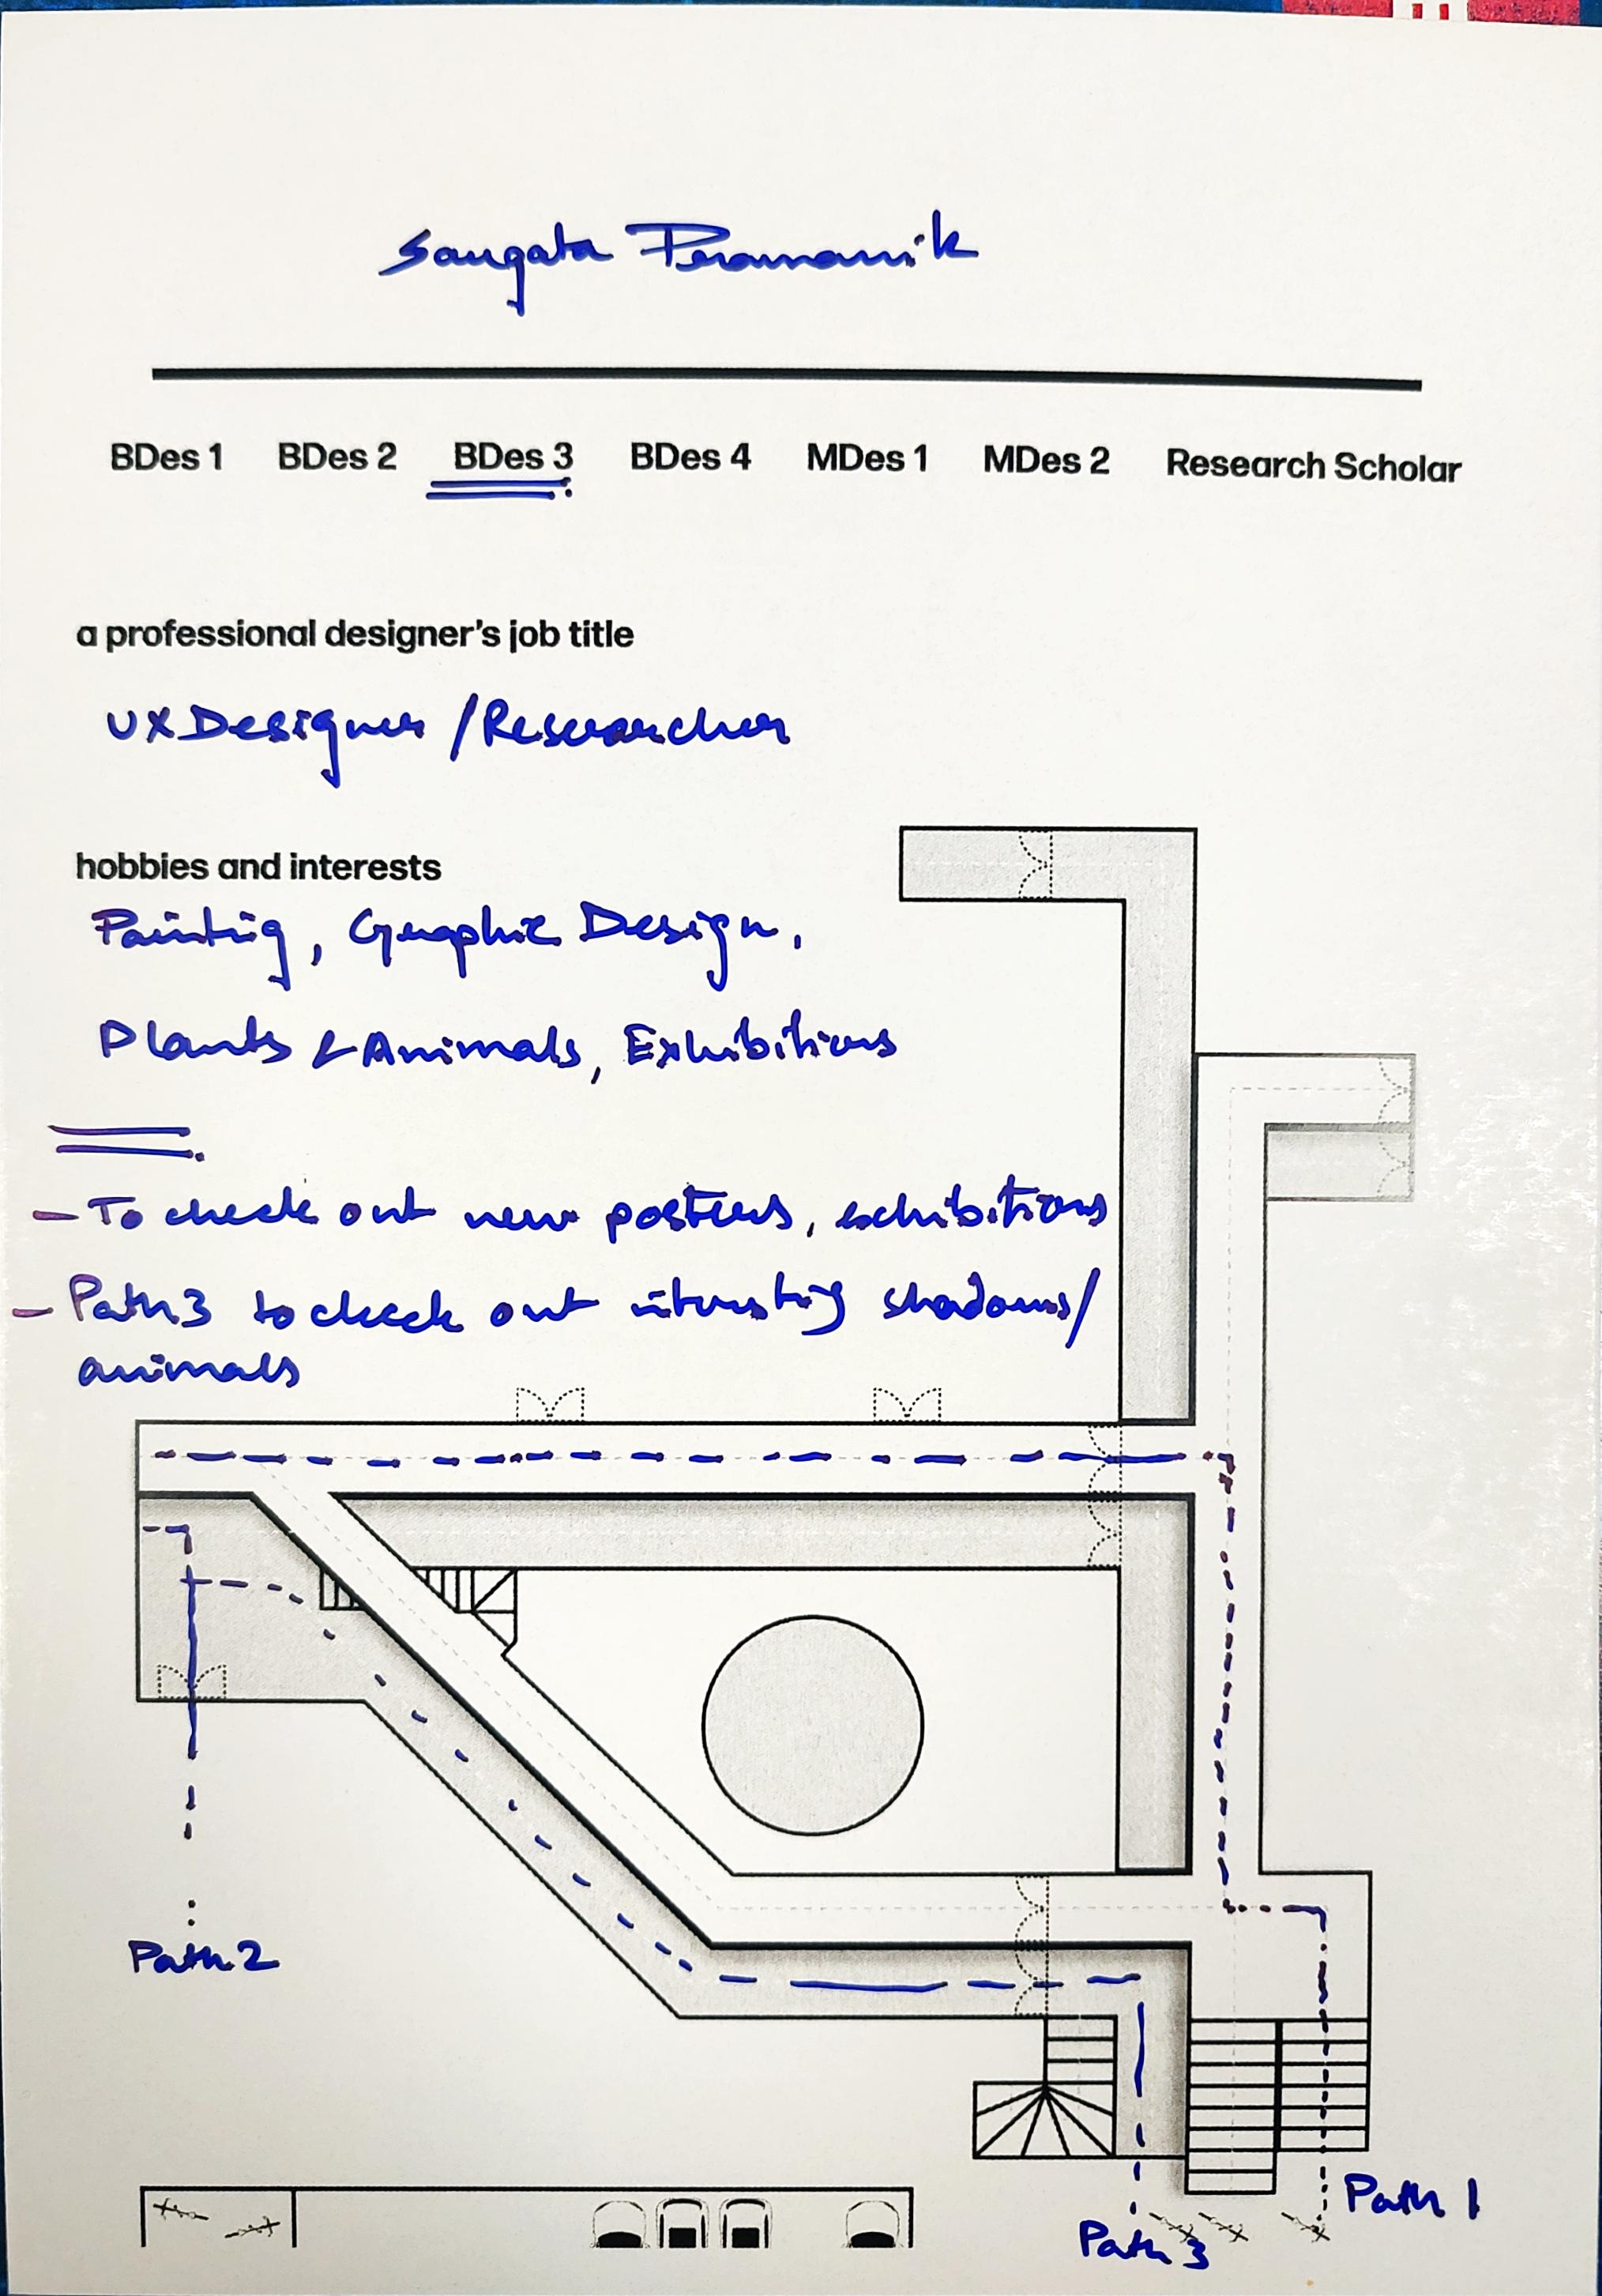 Saugata Pramanik
BDes 1 BDes 2 BDes 3 BDes 4 MDes 1 MDes 2 Research Scholar
a professional designer's job title
UX Designer / Researcher
hobbies and interests
Painting, Graphic Design,
Plants & Animals, Exhibitions
- To check out new posters, exhibitions
- Path 3 to check out interesting shadows/
animals
Path 2
Path 1
Path 3